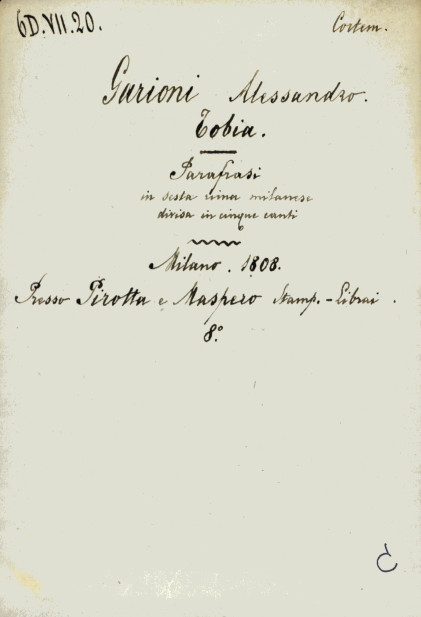 6D.VII.20.
Cortem.
Garioni Alessandro.
Tobia.
Parafrasi
in sesta rima milanese
divisa in cinque canti
Milano. 1808.
Presso Pirotta e Maspero Stamp.-Librai.
8.°